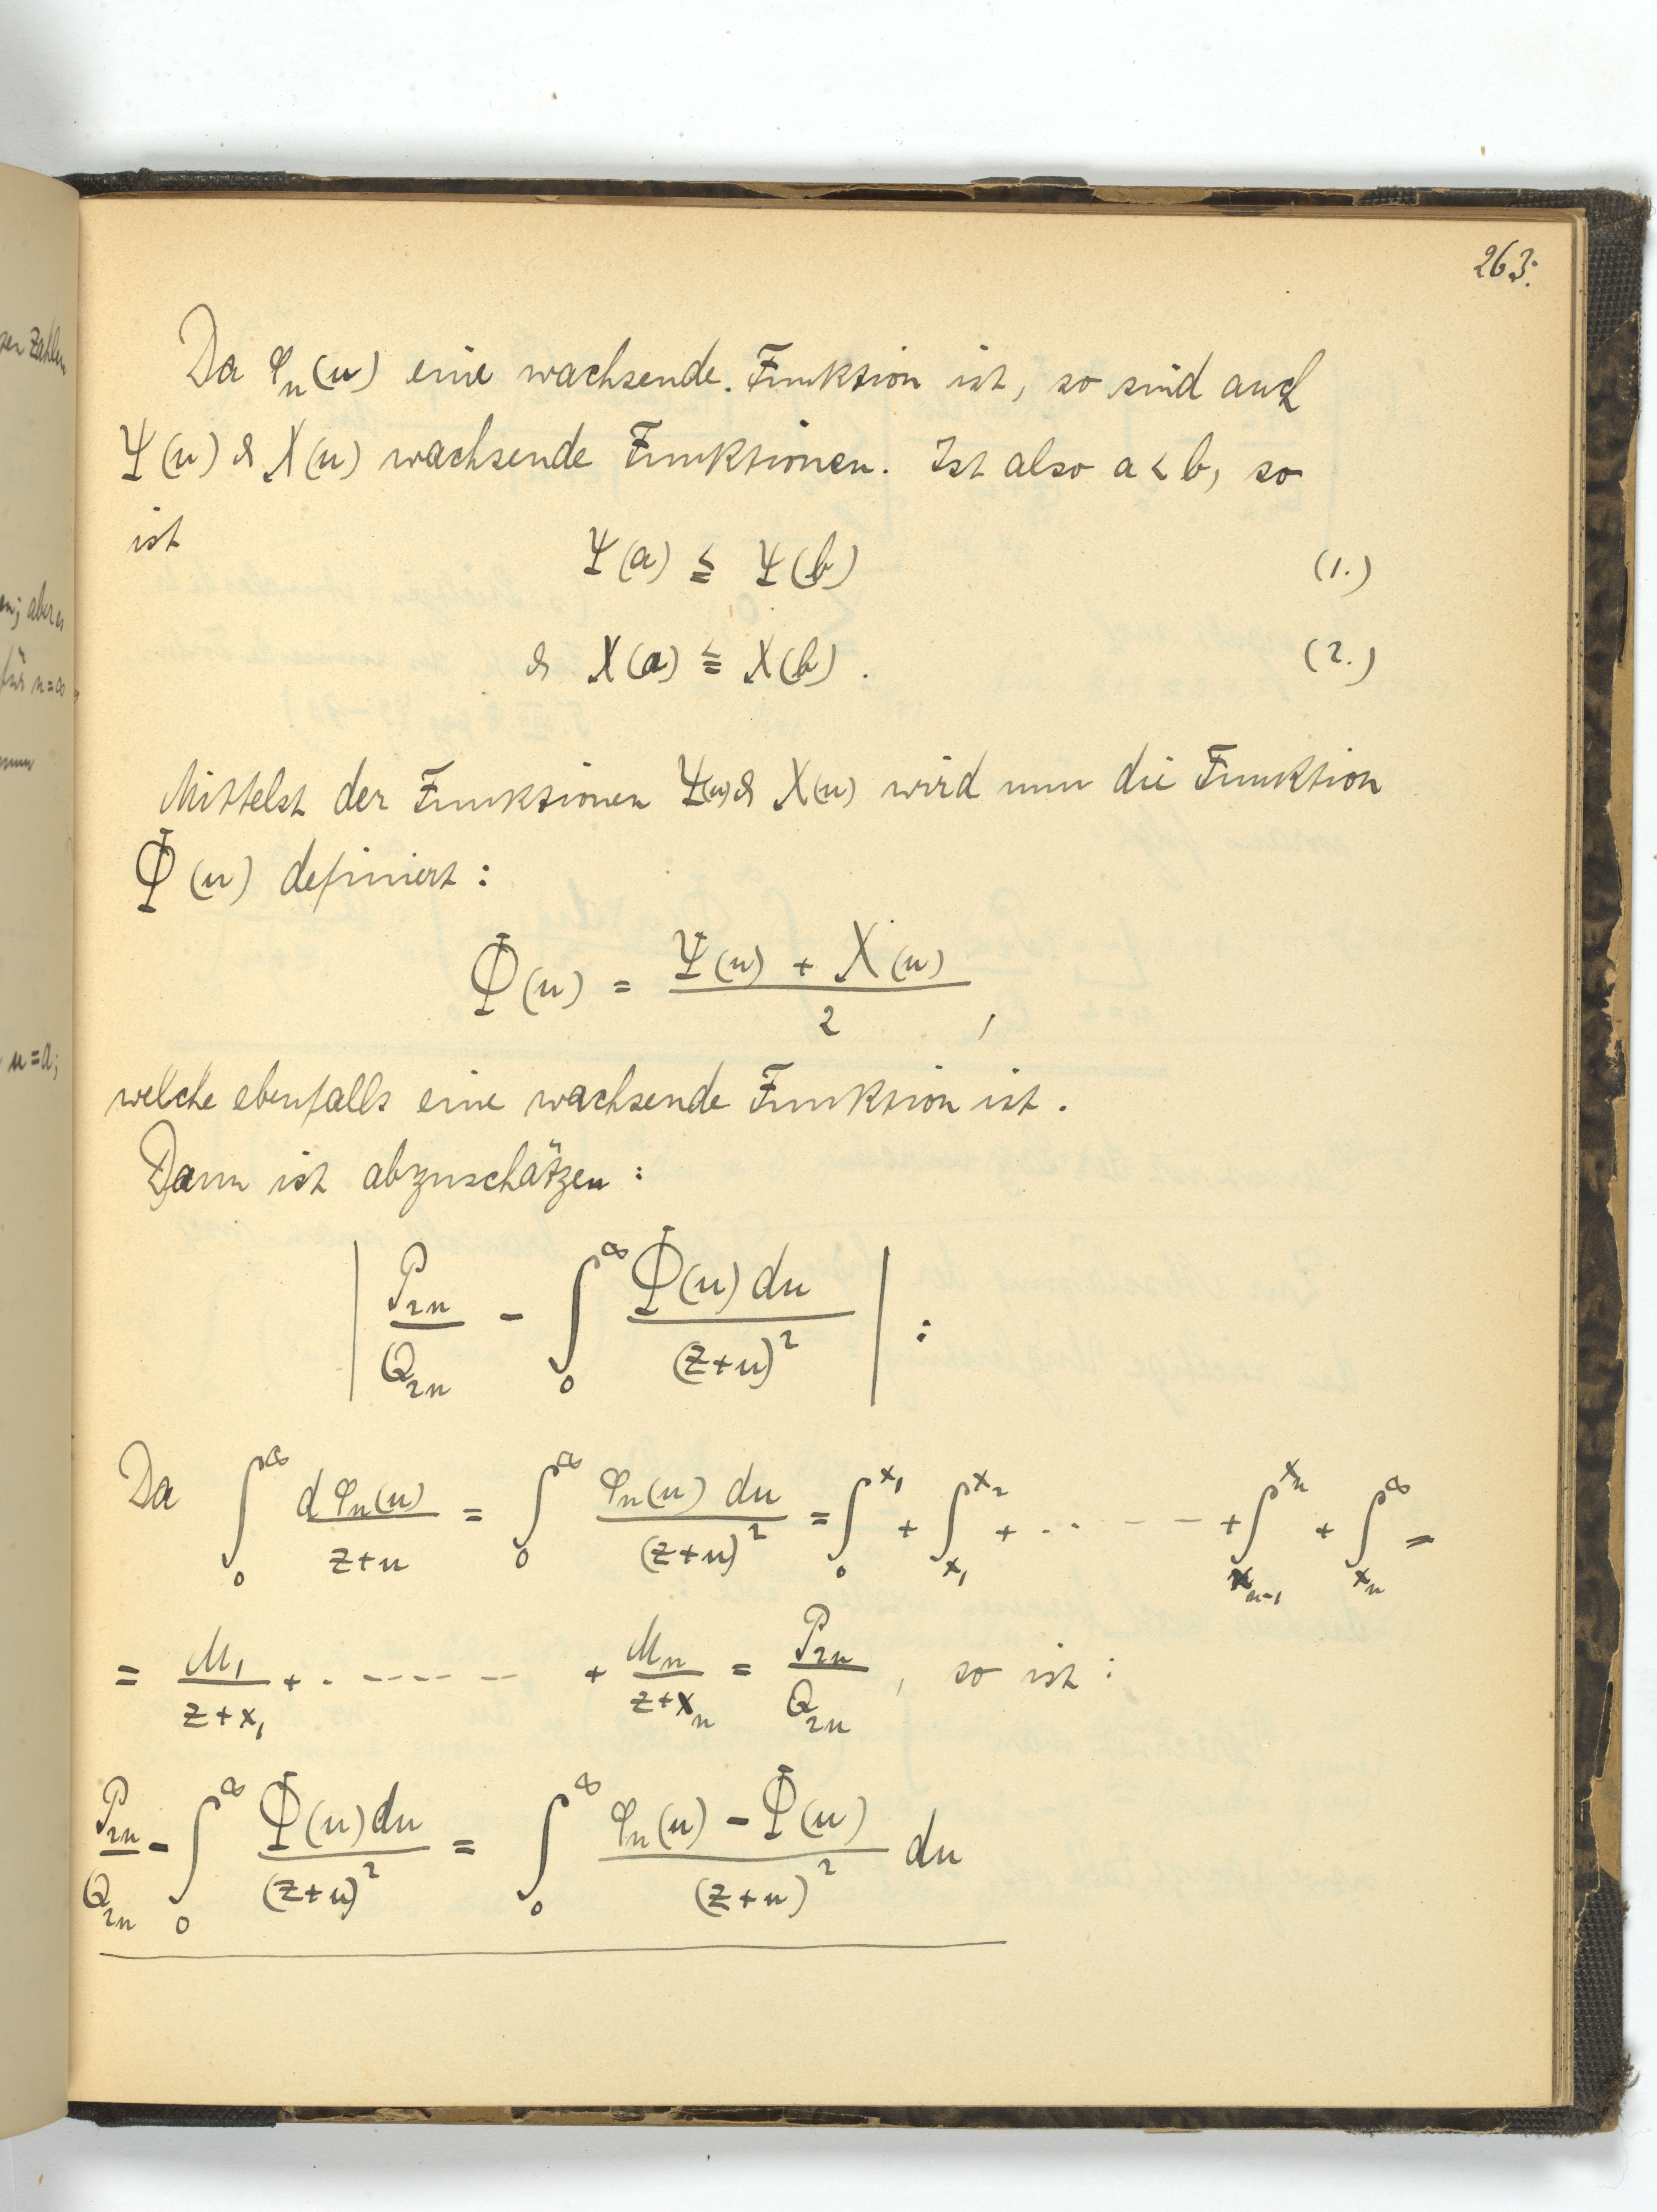 263.
Da φ_n(u) eine wachsende Funktion ist, so sind auch
Ψ(u) & X(u) wachsende Funktionen. Ist also a < b, so
ist
Ψ(a) ≦ Ψ(b) (1.)
& X(a) ≦ X(b). (2.)
Mittelst der Funktionen Ψ(u) & X(u) wird nun die Funktion
Φ(u) definiert:
Φ(u) = (Ψ(u) + X(u))/2,
welche ebenfalls eine wachsende Funktion ist.
Dann ist abzuschätzen:
| P_{2n}/Q_{2n} - ∫_0^∞ Φ(u) du/(z+u)^2 | :
Da ∫_0^∞ dφ_n(u)/(z+u) = ∫_0^∞ φ_n(u) du/(z+u)^2 = ∫_0^{x_1} + ∫_{x_1}^{x_2} + ..---- + ∫_{x_{n-1}}^{x_n} + ∫_{x_n}^∞ =
= M_1/(z+x_1) + .------ + M_n/(z+x_n) = P_{2n}/Q_{2n}, so ist:
P_{2n}/Q_{2n} - ∫_0^∞ Φ(u) du/(z+u)^2 = ∫_0^∞ (φ_n(u) - Φ(u))/(z+u)^2 du
Zahlen
aber
für n=∞
u=a;